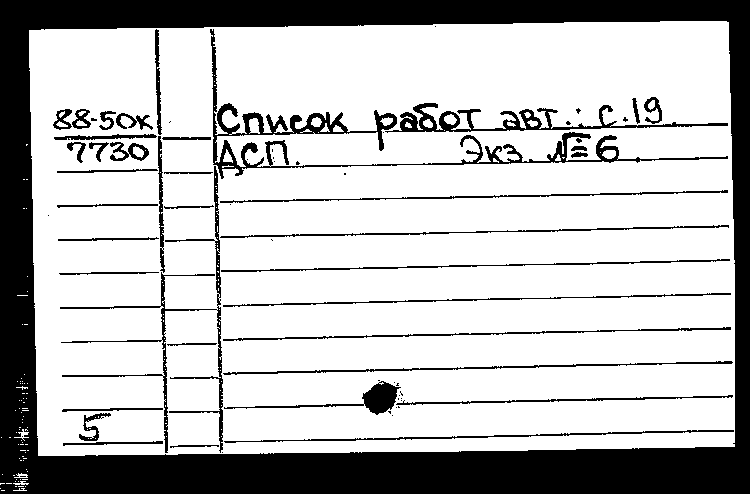 88-50к Список работ авт.: с.19.
7730 ДСП. Экз. № 6.
5